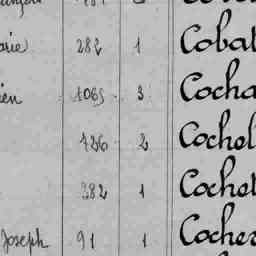 arie 282 1 Cobal
ien 1065 3 Cocha
426 2 Cochel
382 1 Cochet
Joseph 91 1 Cocher